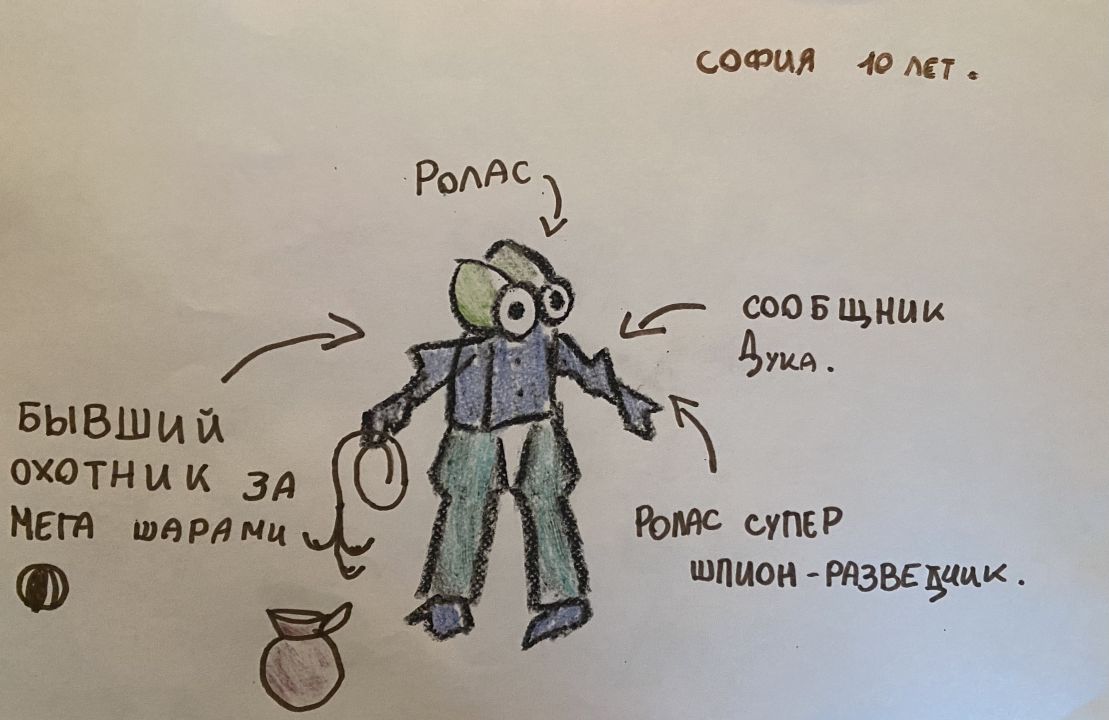 СОФИЯ 10 ЛЕТ.
РОЛАС
СООБЩНИК
ДУКА.
БЫВШИЙ
ОХОТНИК ЗА
МЕГА ШАРАМИ
РОЛАС СУПЕР
ШПИОН-РАЗВЕДЧИК.